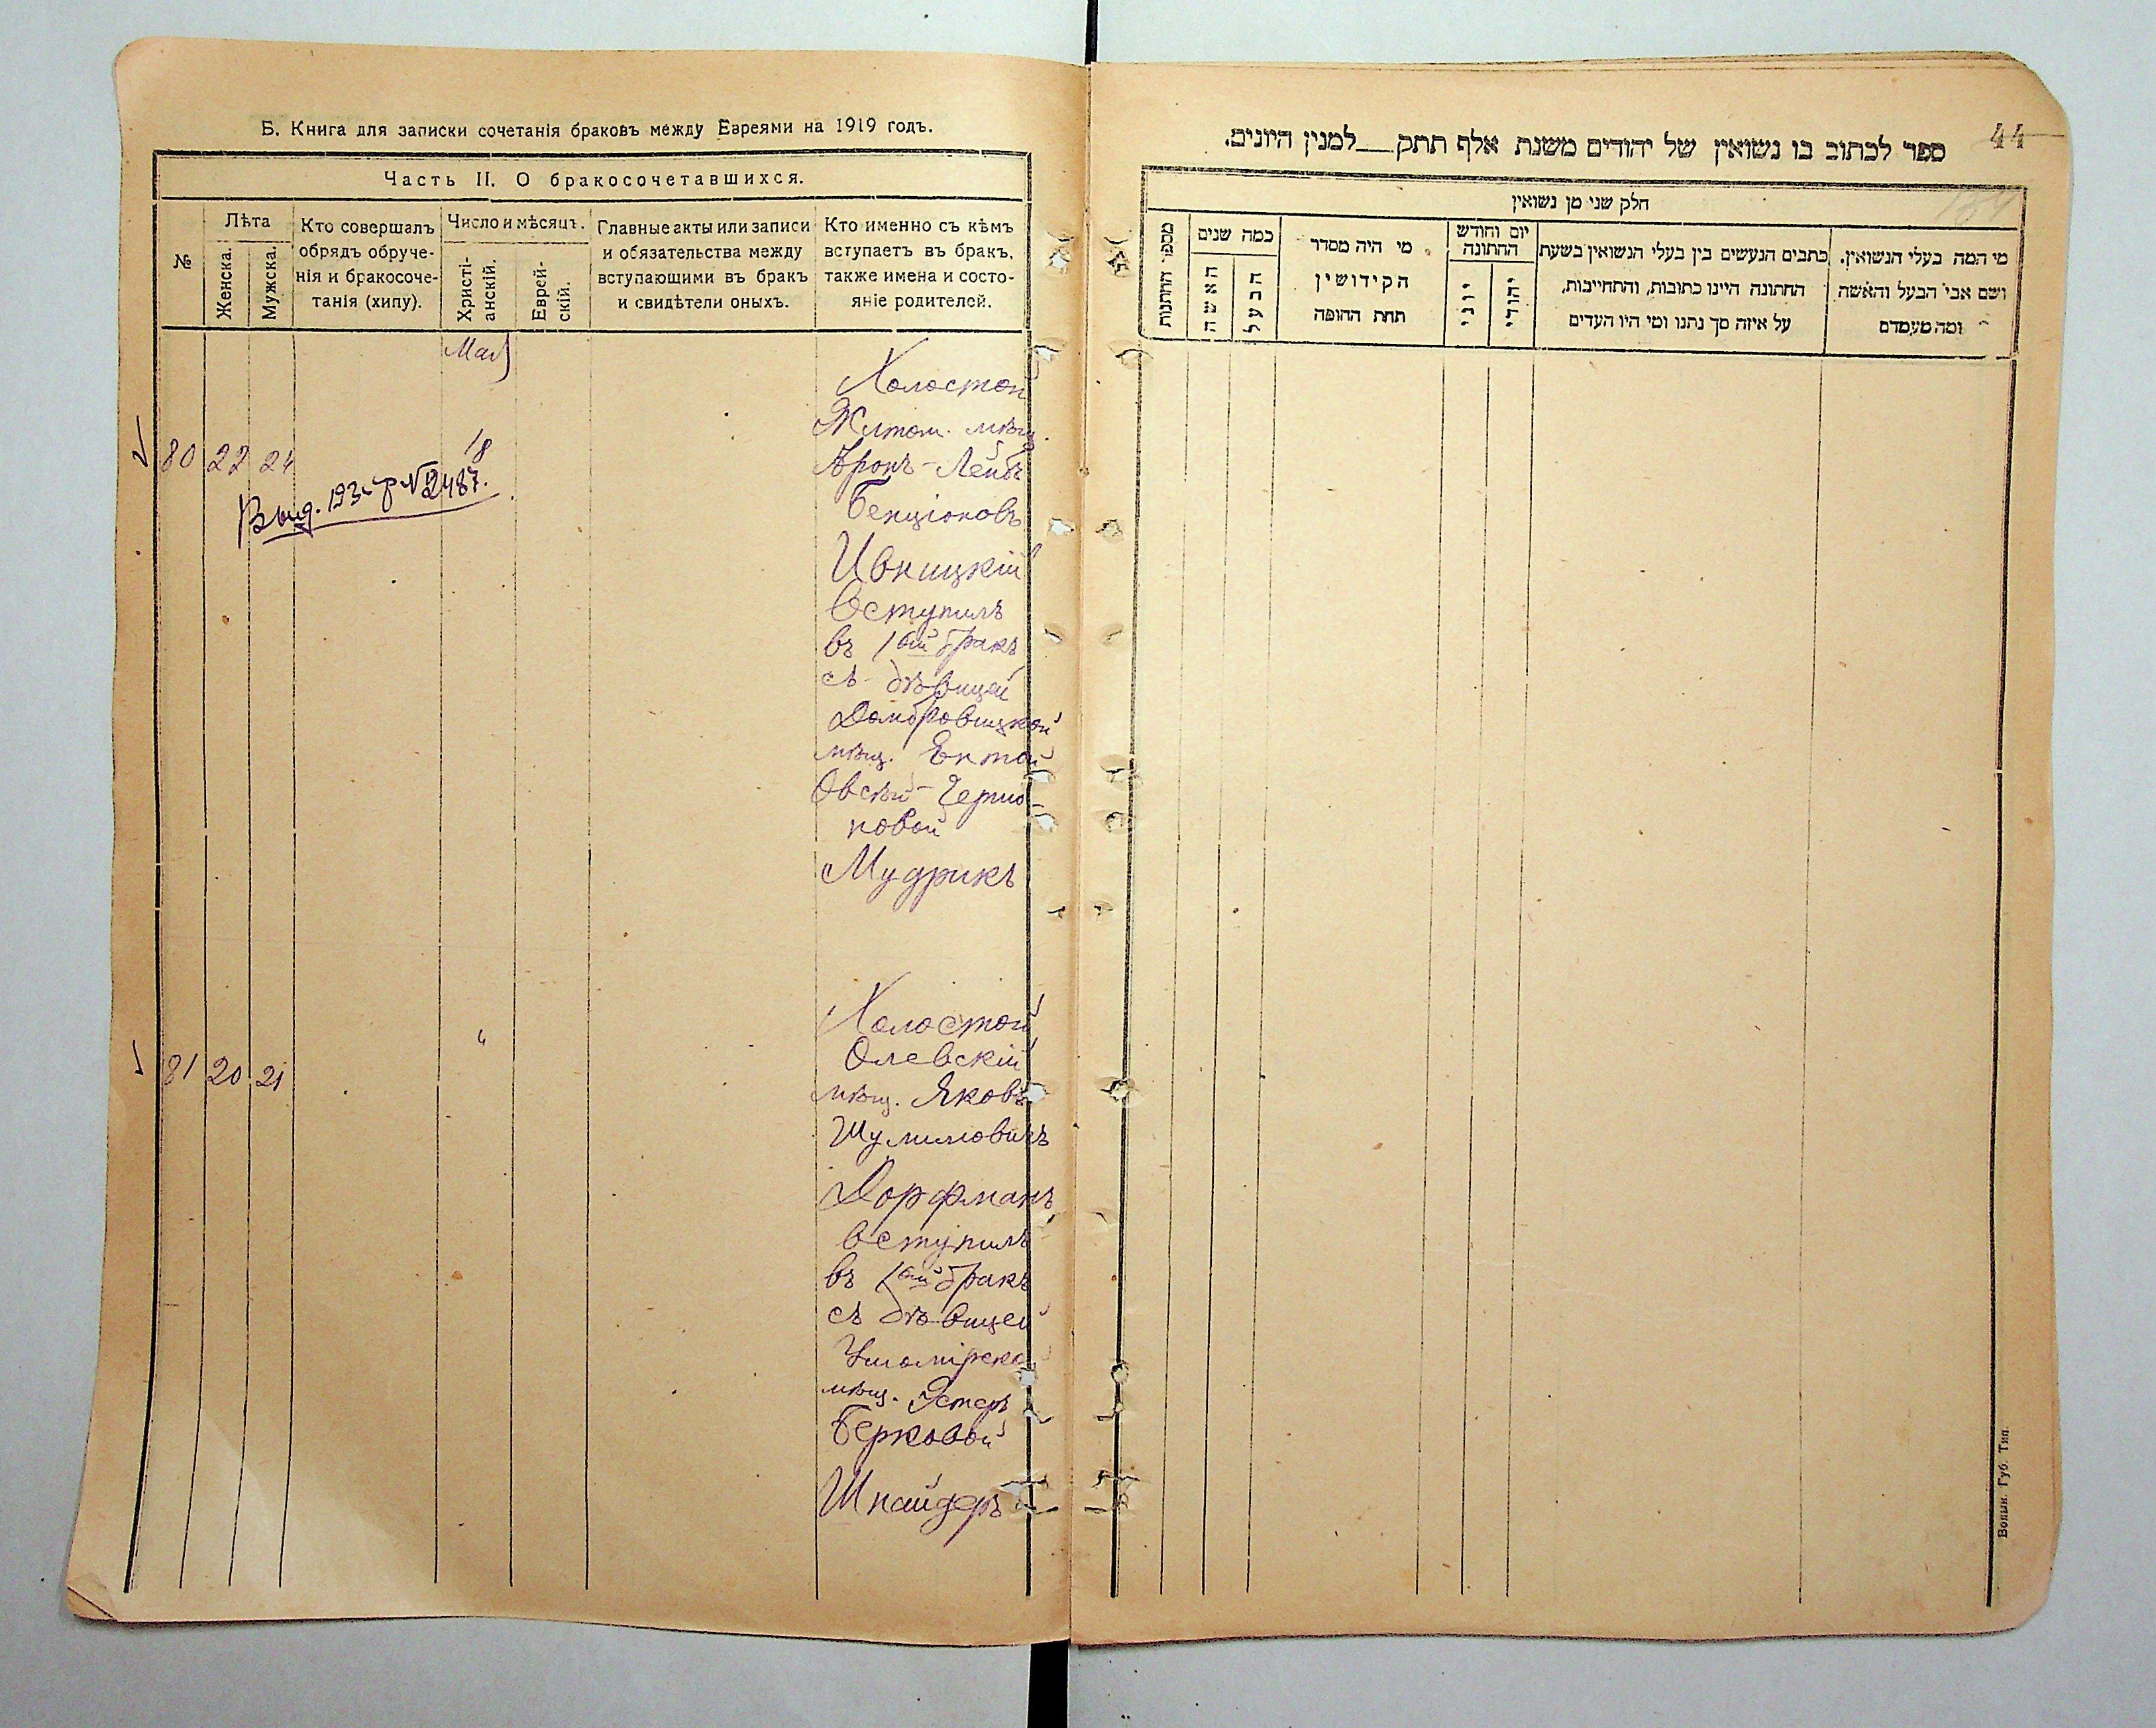 Б. Книга для записки сочетанія браковъ между Евреями на 1919 годъ.
Часть II. О бракосочетавшихся.
№
Лѣта
Женска.
Мужска.
Кто совершалъ
обрядъ обруче-
нія и бракосоче-
танія (хипу).
Число и мѣсяцъ.
Христі-
анскій.
Еврей-
скій.
Главные акты или записи
и обязательства между
вступающими въ бракъ
и свидѣтели оныхъ.
Кто именно съ кѣмъ
вступаетъ въ бракъ,
также имена и состо-
яніе родителей.
Май
80 22 24 18
Выд. № 2487.
Холостой
Житом. мѣщ.
Аронъ-Лейбъ
Бенціоновъ
Ивницкій
вступилъ
въ 1ый бракъ
съ дѣвицей
Домбровицкой
мѣщ. Ентой
Овсѣй-Герно-
новой
Мудрикъ
81 20 21 "
Холостой
Олевскій
мѣщ. Яковъ
Шулимовичъ
Дорфманъ
вступилъ
въ 1ый бракъ
съ дѣвицей
Ушомірско
мѣщ. Эстеръ
Берковой
Шнайдеръ
44
ספר לכתוב בו נשואין של יהודים משנת אלף תתק__למנין היונים.
חלק שני מן נשואין
מספר החתנות
כמה שנים
האשה
הבעל
מי היה מסדר
הקידושין
תחת החופה
יום וחודש
החתונה
יוני
יהודי
כתבים הנעשים בין בעלי הנשואין בשעת
החתונה היינו כתובות, והתחייבות,
על איזה סך נתנו ומי היו העדים
מי המה בעלי הנשואין.
ושם אבי הבעל והאשה
ומה מעמדם
Волын. Губ. Тип.